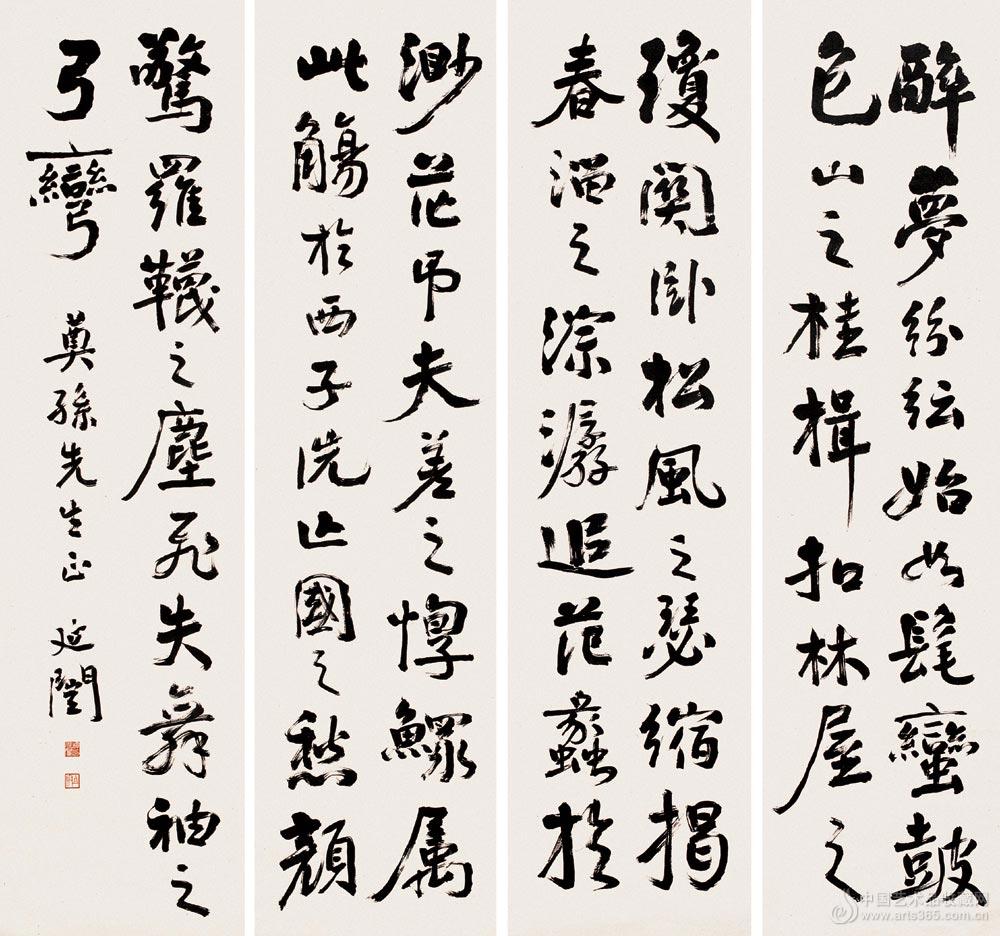 醉夢紛紜始如髦蠻皷
包山之桂楫扣林屋之
瓊關臥松風之瑟縮揭
春溜之淙潺追范蠡於
渺茫吊夫差之惸鰥属
此觴於西子洗亡國之愁顏
驚羅韈之塵飛失舞袖之
弓彎
孫先生正 延闓
中国艺术品收藏网
www.arts365.com.cn